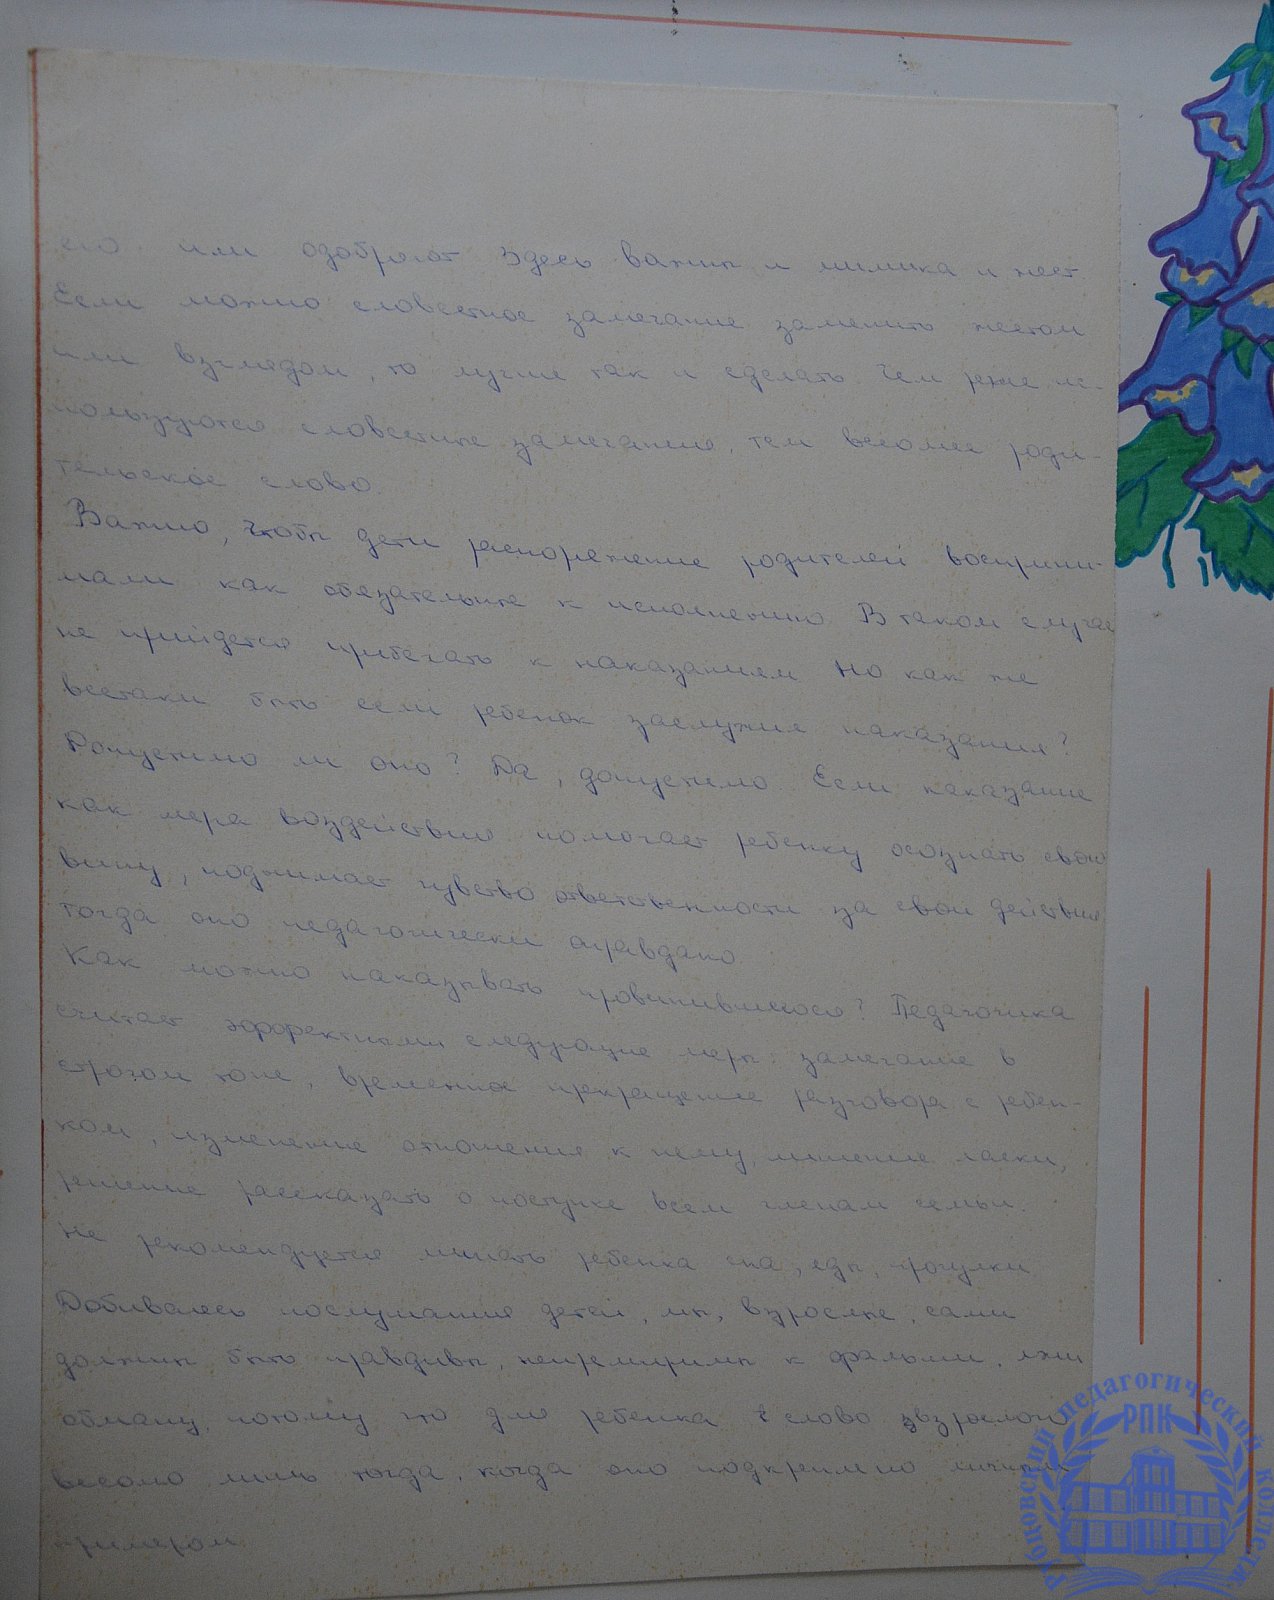 его или одобряют Здесь важны и мимика и жест
Если можно словестное замечание заменить жестом
или взглядом, то лучше так и сделать. Чем реже ис-
пользуются словестные замечания, тем весомее роди-
тельское слово.
Важно, чтобы дети распоряжение родителей восприни-
мали как обязательные к исполнению. В таком случае
не прийдется прибегать к наказаниям Но как же
всетаки быть если ребенок заслужил наказания?
Допустимо ли оно? Да, допустимо Если наказание
как мера воздействия помогает ребенку осознать свою
вину, поднимает чувство ответственности за свои действия
тогда оно педагогически оправдано.
Как можно наказывать провинившегося? Педагогика
считает эффектными следующие меры: замечание в
строгом тоне, временное прекращение разговора с ребен-
ком, изменение отношения к нему, лишение ласки,
решение рассказать о поступке всем членам семьи.
Не рекомендуется лишать ребенка сна, еды, прогулки
Добиваясь послушания детей, мы, взрослые, сами
должны быть правдивы, непремиримы к фальши, лжи
обману, потому что для ребенка слово взрослого
весомо лишь тогда, когда оно подкреплено личным
примером
Рубцовский педагогический колледж
РПК